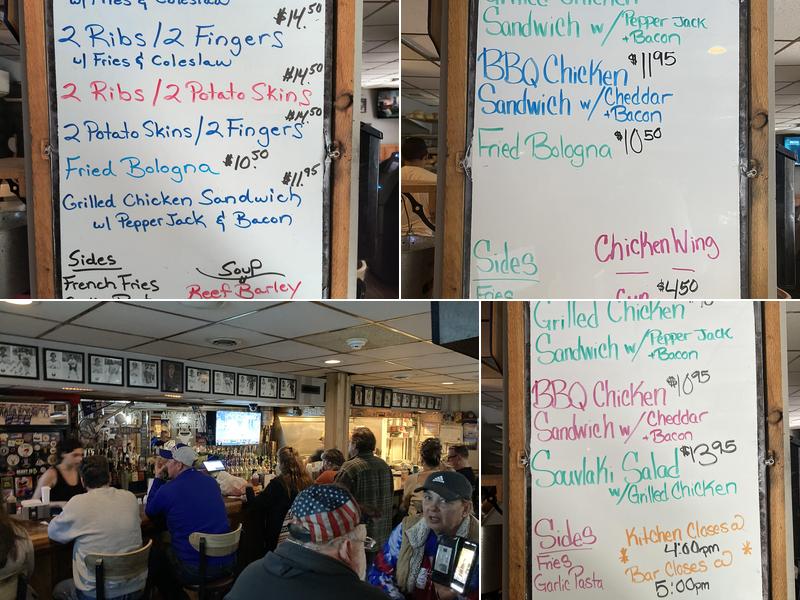 w/ Fries & Coleslaw
$14.50
2 Ribs/2 Fingers
w/ Fries & Coleslaw
$14.50
2 Ribs/2 Potato Skins
$14.50
2 Potato Skins/2 Fingers
Fried Bologna $10.50
$11.95
Grilled Chicken Sandwich
w/ Pepper Jack & Bacon
Sides
French Fries
Soup
Beef Barley
Grilled Chicken
Sandwich w/ Pepper Jack
+Bacon
BBQ Chicken $11.95
Sandwich w/ Cheddar
+Bacon
Fried Bologna $10.50
Sides
Fries
Chicken Wing
Cup $4.50
Grilled Chicken
Sandwich w/ Pepper Jack
+Bacon
BBQ Chicken $10.95
Sandwich w/ Cheddar
+Bacon
Souvlaki Salad $13.95
w/ Grilled Chicken
Sides
Fries
Garlic Pasta
Kitchen Closes @
* 4:00pm *
Bar Closes @
5:00pm
adidas